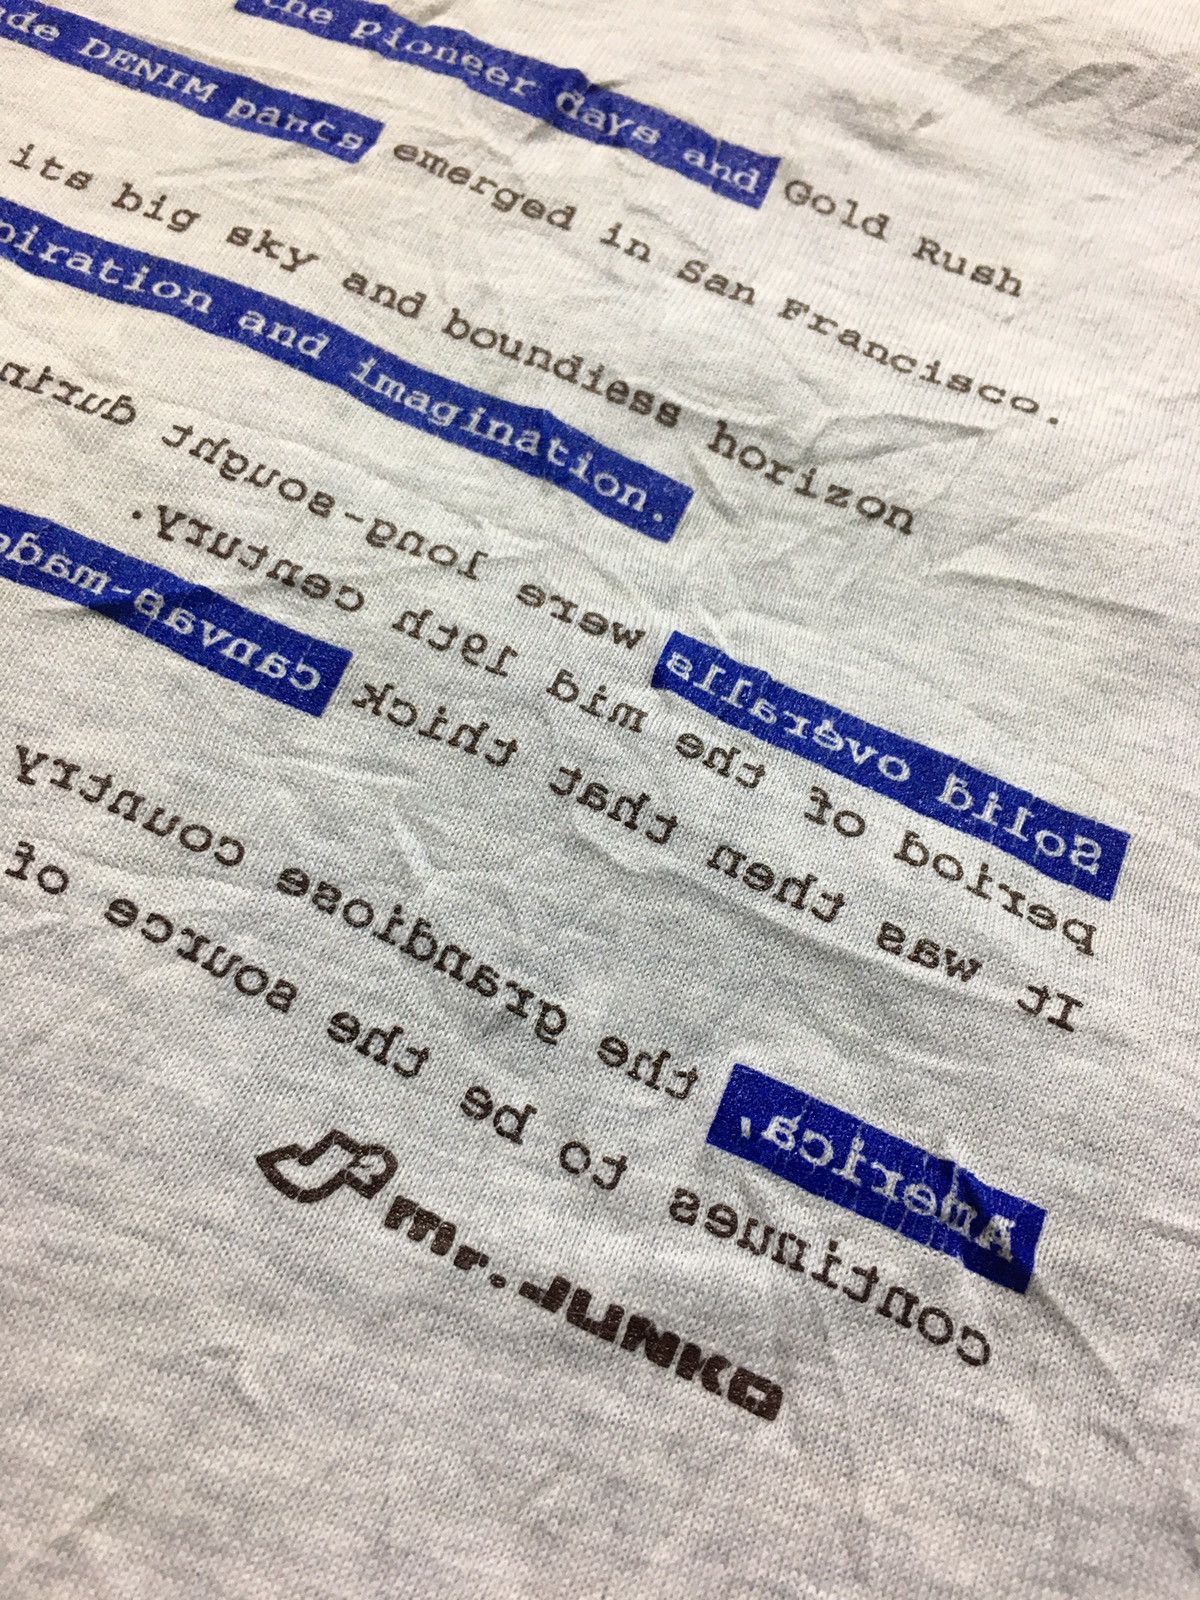 the pioneer days and Gold Rush
DENIM pants emerged in San Francisco.
its big sky and boundless horizon
and imagination.
Solid overalls were long-sought
period of the mid 19th century.
It was then that thick canvas-made
America, the grandiose country
continues to be the source of
mr.JUNKO